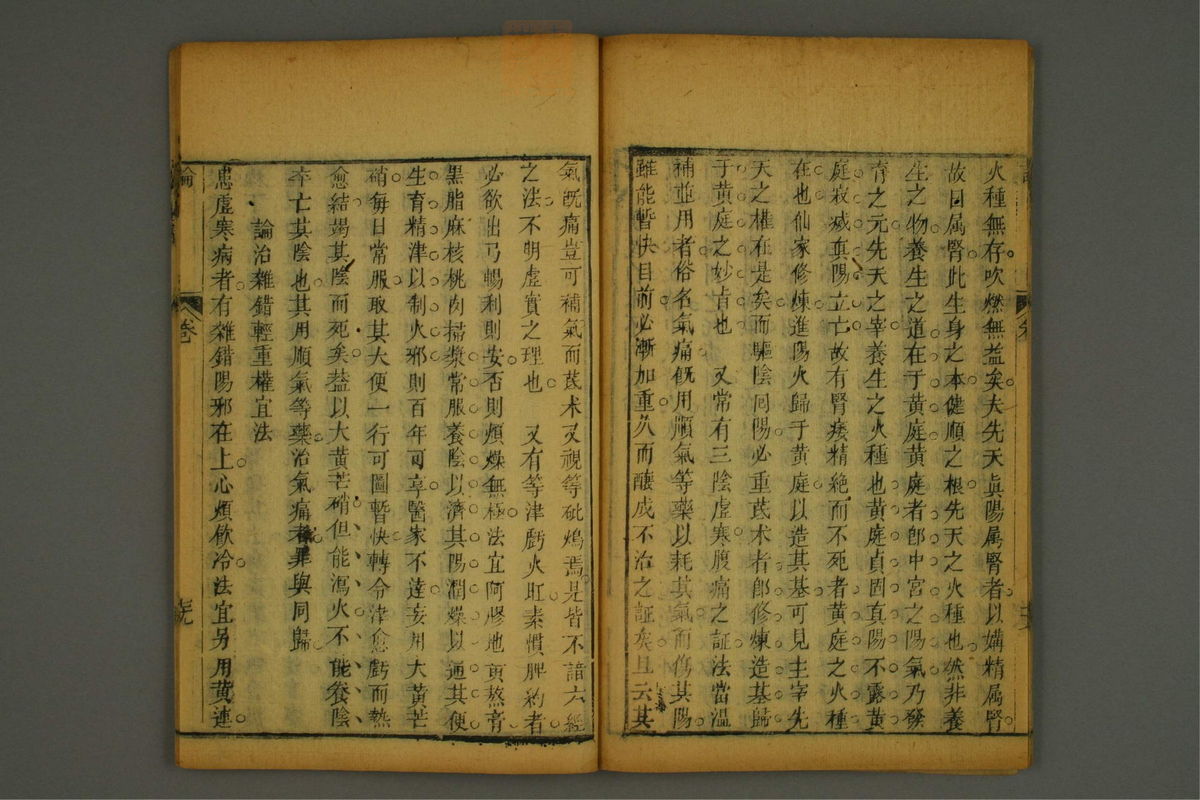 火種無存吹燃無益矣夫先天真陽属腎者以媾精属腎
故曰属腎此生身之本健順之根先天之火種也然非養
生之物養生之道在于黄庭黄庭者卽中宮之陽氣乃發
育之元先天之宰養生之火種也黄庭貞固真陽不露黄
庭寂滅真陽立亡故有腎痿精絶而不死者黄庭之火種
在也仙家修煉進陽火歸于黄庭以造其基可見主宰先
天之權在是矣而驅陰囘陽必重芪术者卽修煉造基歸
于黄庭之妙旨也　又常有三陰虚寒腹痛之証法當温
補並用者俗名氣痛旣用順氣等藥以耗其氣而傷其陽
雖能暫快目前必漸加重久而釀成不治之証矣且云其
氣旣痛豈可補氣而芪术又視等砒鴆焉是皆不諳六經
之法不明虚實之理也　又有等津虧火旺素慣脾約者
必欲出弓暢利則安否則煩燥無極法宜阿膠地黄熬膏
黒脂麻核桃肉掃漿常服養陰以濟其陽潤燥以通其便
生育精津以制火邪則百年可享醫家不達妄用大黄芒
硝每日常服取其大便一行可圖暫快轉令津愈虧而熱
愈結竭其陰而死矣葢以大黄芒硝但能瀉火不能養陰
卒亡其陰也其用順氣等藥治氣痛者罪與同歸
論治雜錯輕重權宜法
患虚寒病者有雜錯陽邪在上心煩飲冷法宜另用黄連
論
卷